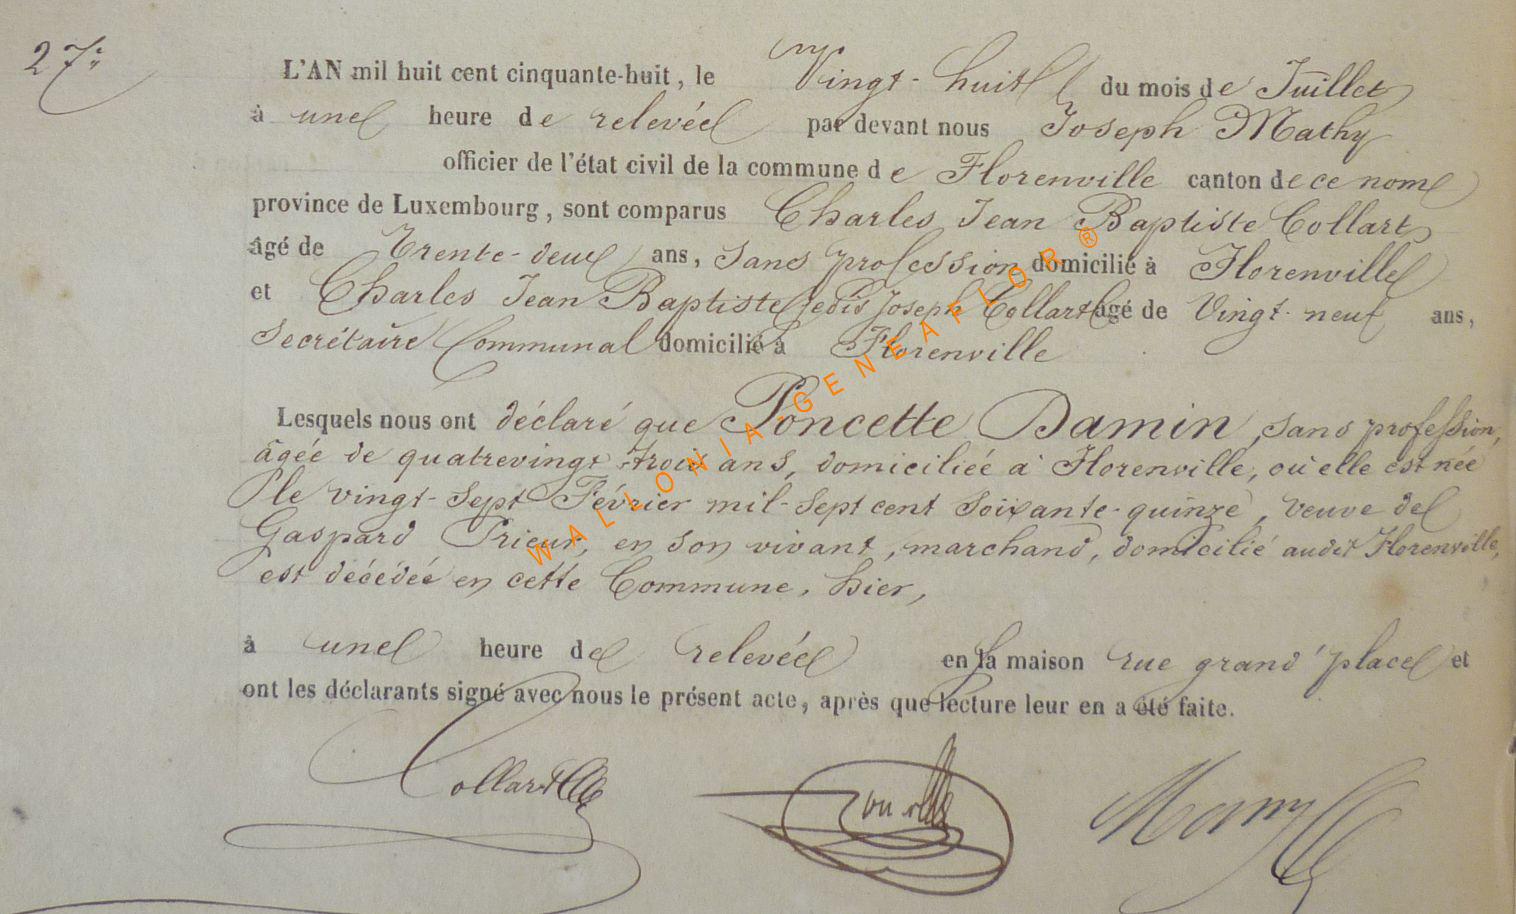 27.
L'AN mil huit cent cinquante-huit, le Vingt-huit du mois de Juillet
à une heure de relevée par devant nous Joseph Mathy
officier de l'état civil de la commune de Florenville canton de ce nom
province de Luxembourg, sont comparus Charles Jean Baptiste Collart
âgé de Trente-deux ans, sans profession domicilié à Florenville
et Charles Jean Baptiste Joseph Collart âgé de Vingt-neuf ans,
Secrétaire Communal domicilié à Florenville
Lesquels nous ont déclaré que Poncette Damin, sans profession,
âgée de quatrevingt-trois ans, domiciliée à Florenville, où elle est née
le vingt-sept Février mil-sept cent soixante-quinze, veuve de
Gaspard Prieur, en son vivant, marchand, domicilié audit Florenville,
est décédée en cette Commune, hier,
à une heure de relevée en la maison rue grand'place et
ont les déclarants signé avec nous le présent acte, après que lecture leur en a été faite.
Collart
WALLONIA-GENEAFLOR®